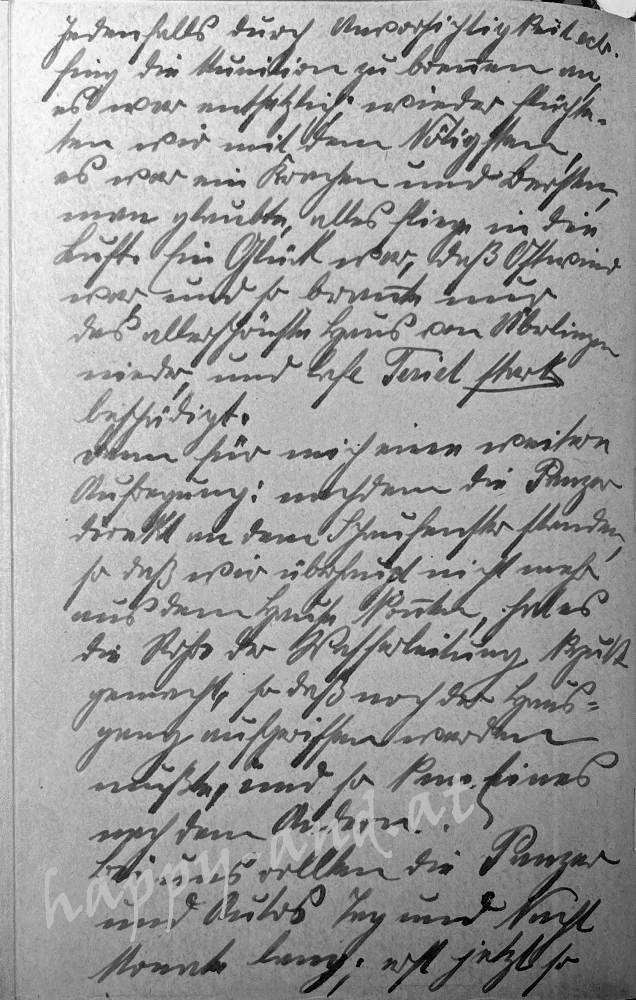 Jedenfalls durch Unvorsichtigkeit etc.
fing die Munition zu brennen an,
es war entsetzlich: wieder flüchte-
ten wir mit dem Nötigsten,
es war ein Krachen und Bersten,
man glaubte, alles fliege in die
Luft. Ein Glück war, daß Ostwind
war und so brannte nur
das allerschönste Haus von Überlingen
nieder, und Café stark
beschädigt.
Dann für mich eine weitere
Aufregung: nachdem die Panzer
direkt an dem Schaufenster standen,
so daß wir überhaupt nicht mehr
aus dem Hause konnten, hat es
die Rohre der Wasserleitung kaputt
gemacht, so daß noch der Haus=
gang aufgerissen werden
mußte, und so kam eines
nach dem Andern.
Bei uns rollten die Panzer
und Autos Tag und Nacht
Monate lang, erst jetzt so
happy-and.at